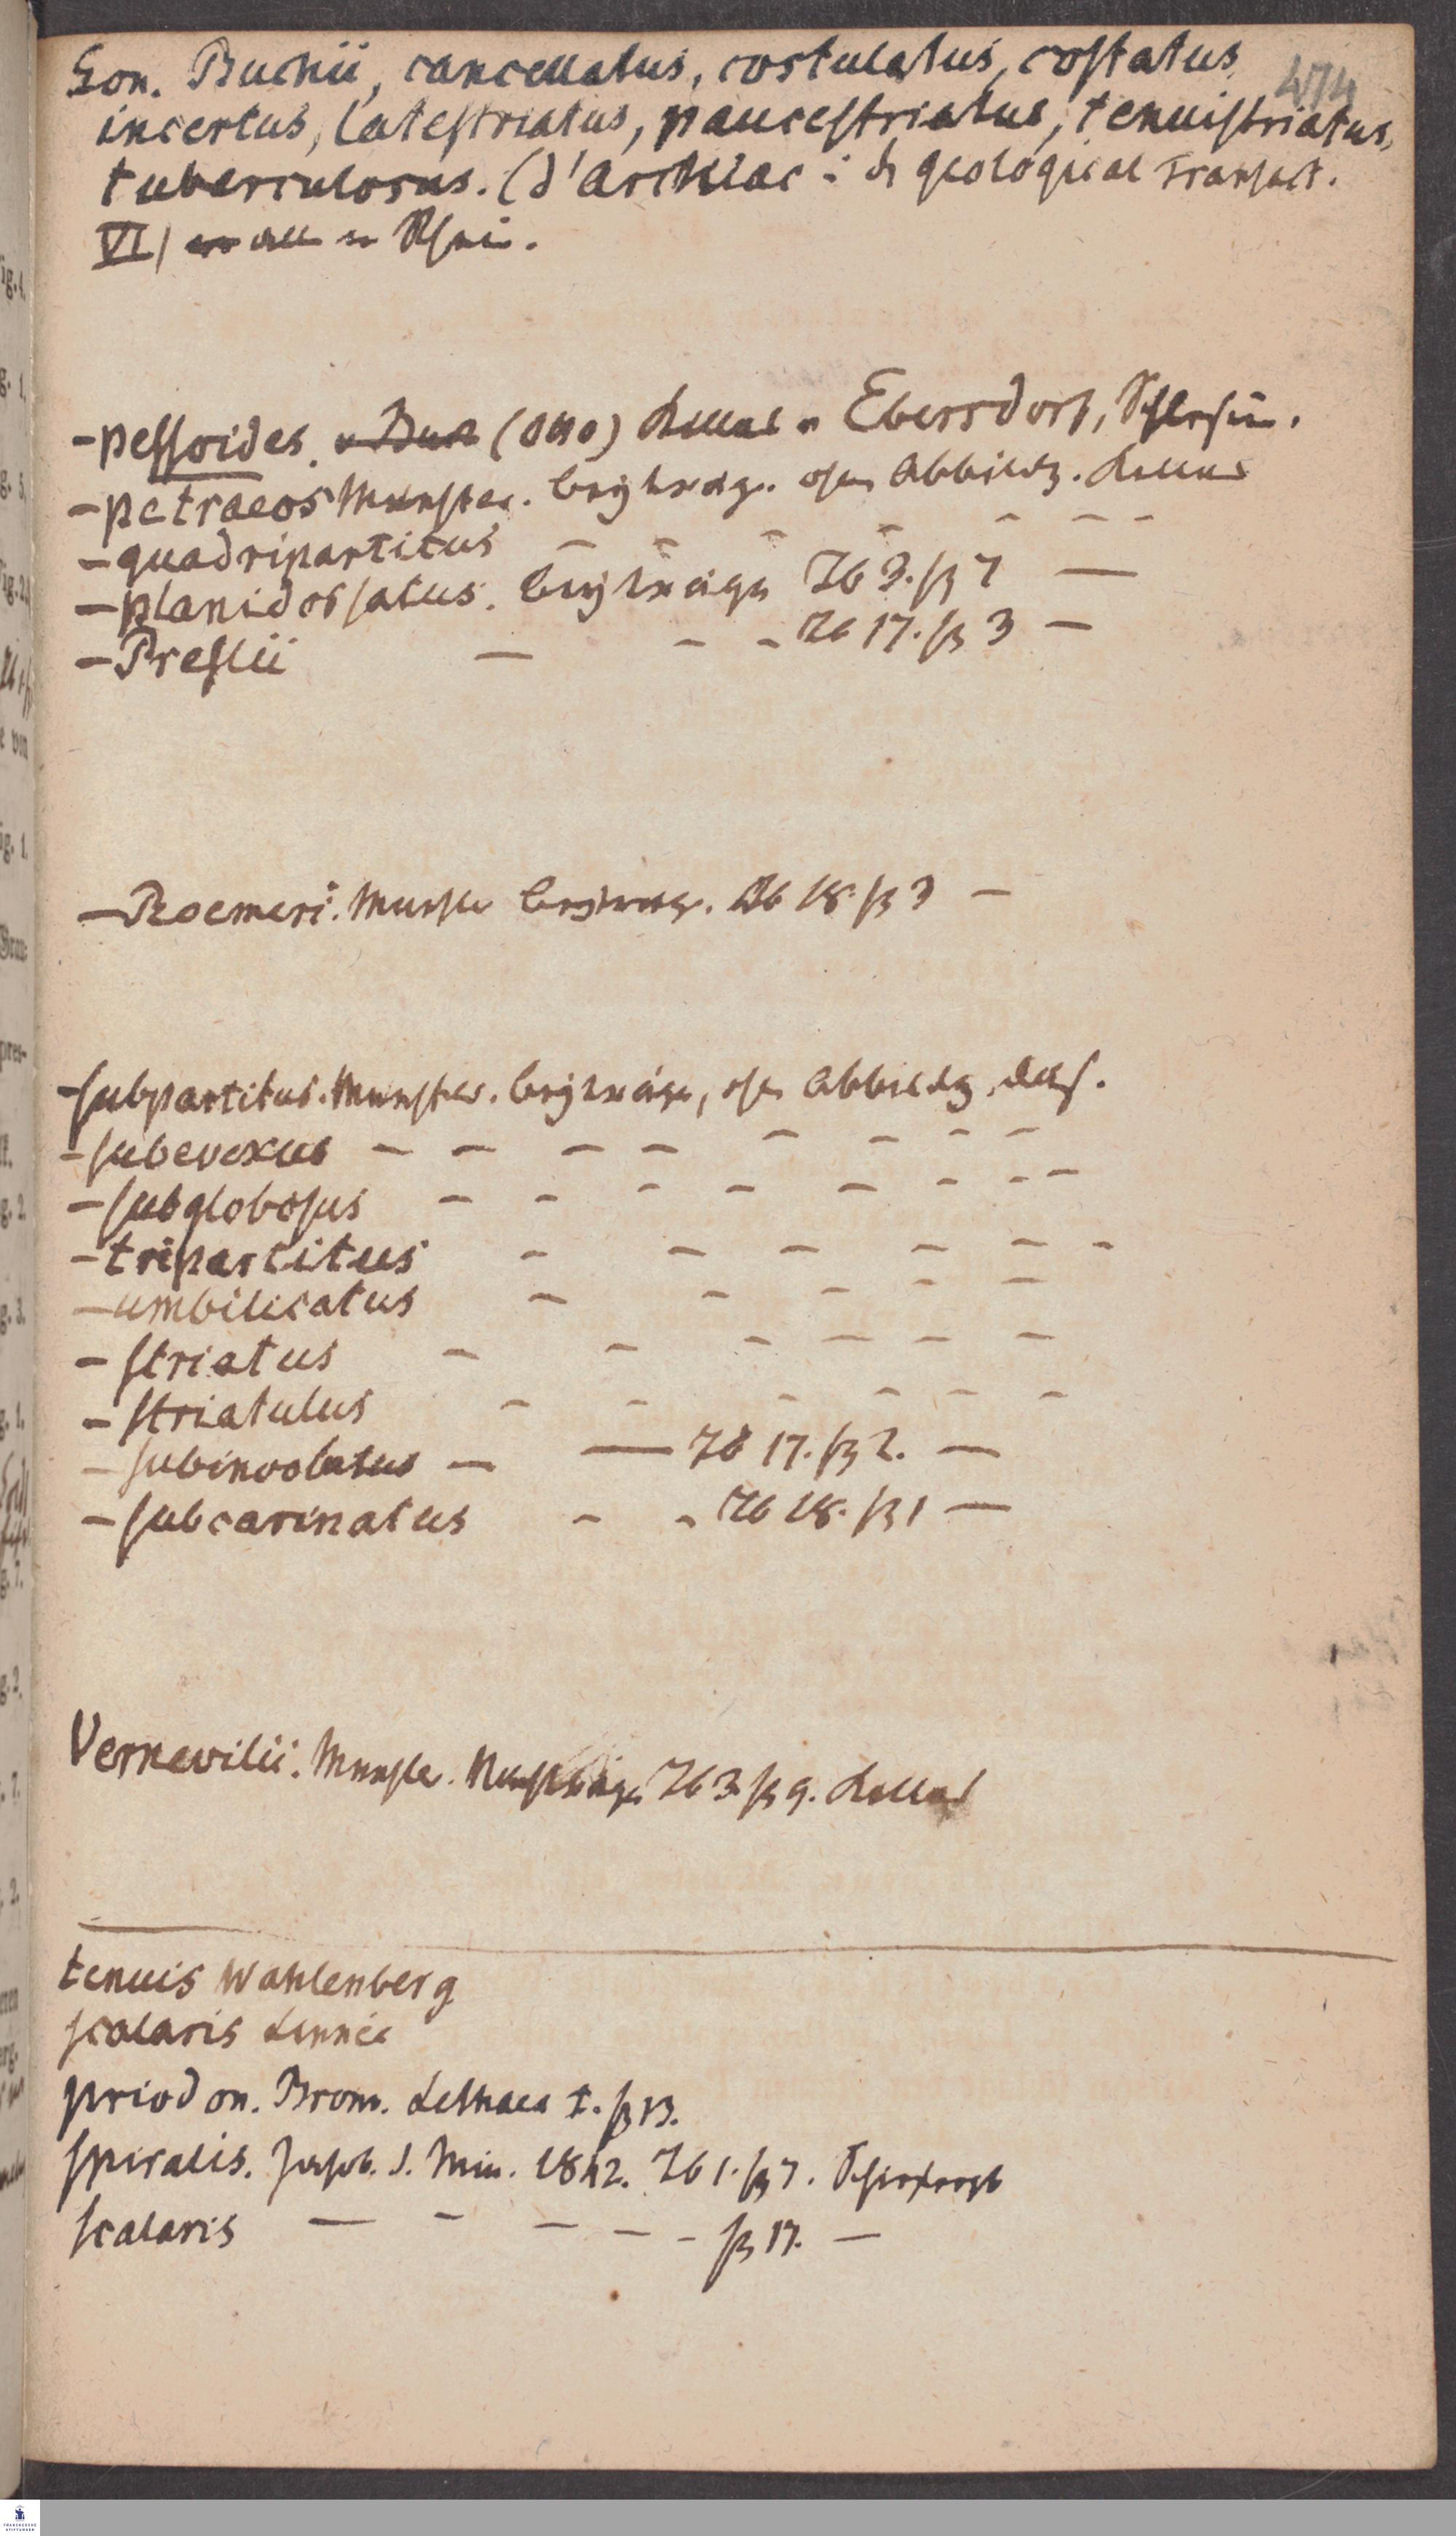 Gon. Buchii, cancellatus, costulatus, coſtatus
474
incertus, lateſtriatus, pauceſtriatus, tenuiſtriatus,
tuberculosus. (d'Archiac : geological Tranſact.
VI) Rhein.
– peſſoides. (Otto) Kalk Ebersdorf, Schleſien.
– petraeos Münſter. Beyträge. ohne Abbildg. Kalk
– quadripartitus – – – – – – –
– planidorſatus. Beyträge Tb 3. fg 7 –
– Preſlii – – – Tb 17. fg 3 –
– Roemeri. Münſter Beyträge. Tb 18. fg 3 –
– ſubpartitus. Münſter. Beyträge, ohne Abbildg.
– ſubevexus – – – – – – – –
– ſubgloboſus – – – – – – – –
– tripartitus – – – – – –
– umbilicatus – – – – –
– ſtriatus – – – – – –
– ſtriatulus – – – – – –
– ſubinvolutus – – Tb 17. fg 2. –
– ſubcarinatus – – Tb 18. fg 1 –
Verneuilii. Münſter. Tb 3 fg 9. Kalk
tenuis Wahlenberg
ſcalaris Linnée
priodon. Bronn. Lethaea I. fg 13.
ſpiralis. Jahrb. d. Min. 1842. Tb 1. fg 7.
ſcalaris – – – – – fg 17. –
FRANCKESCHE
STIFTUNGEN